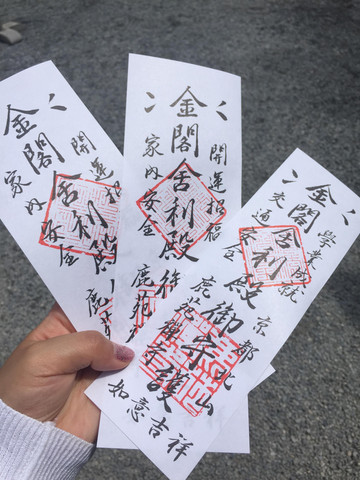 開運招福
金閣舍利殿
家内安全
鹿苑
開運招福
金閣舍利殿
家内安全
鹿苑
學業成就
金閣舍利殿
交通安全
京都北山
御守護
鹿苑禅寺
如意吉祥